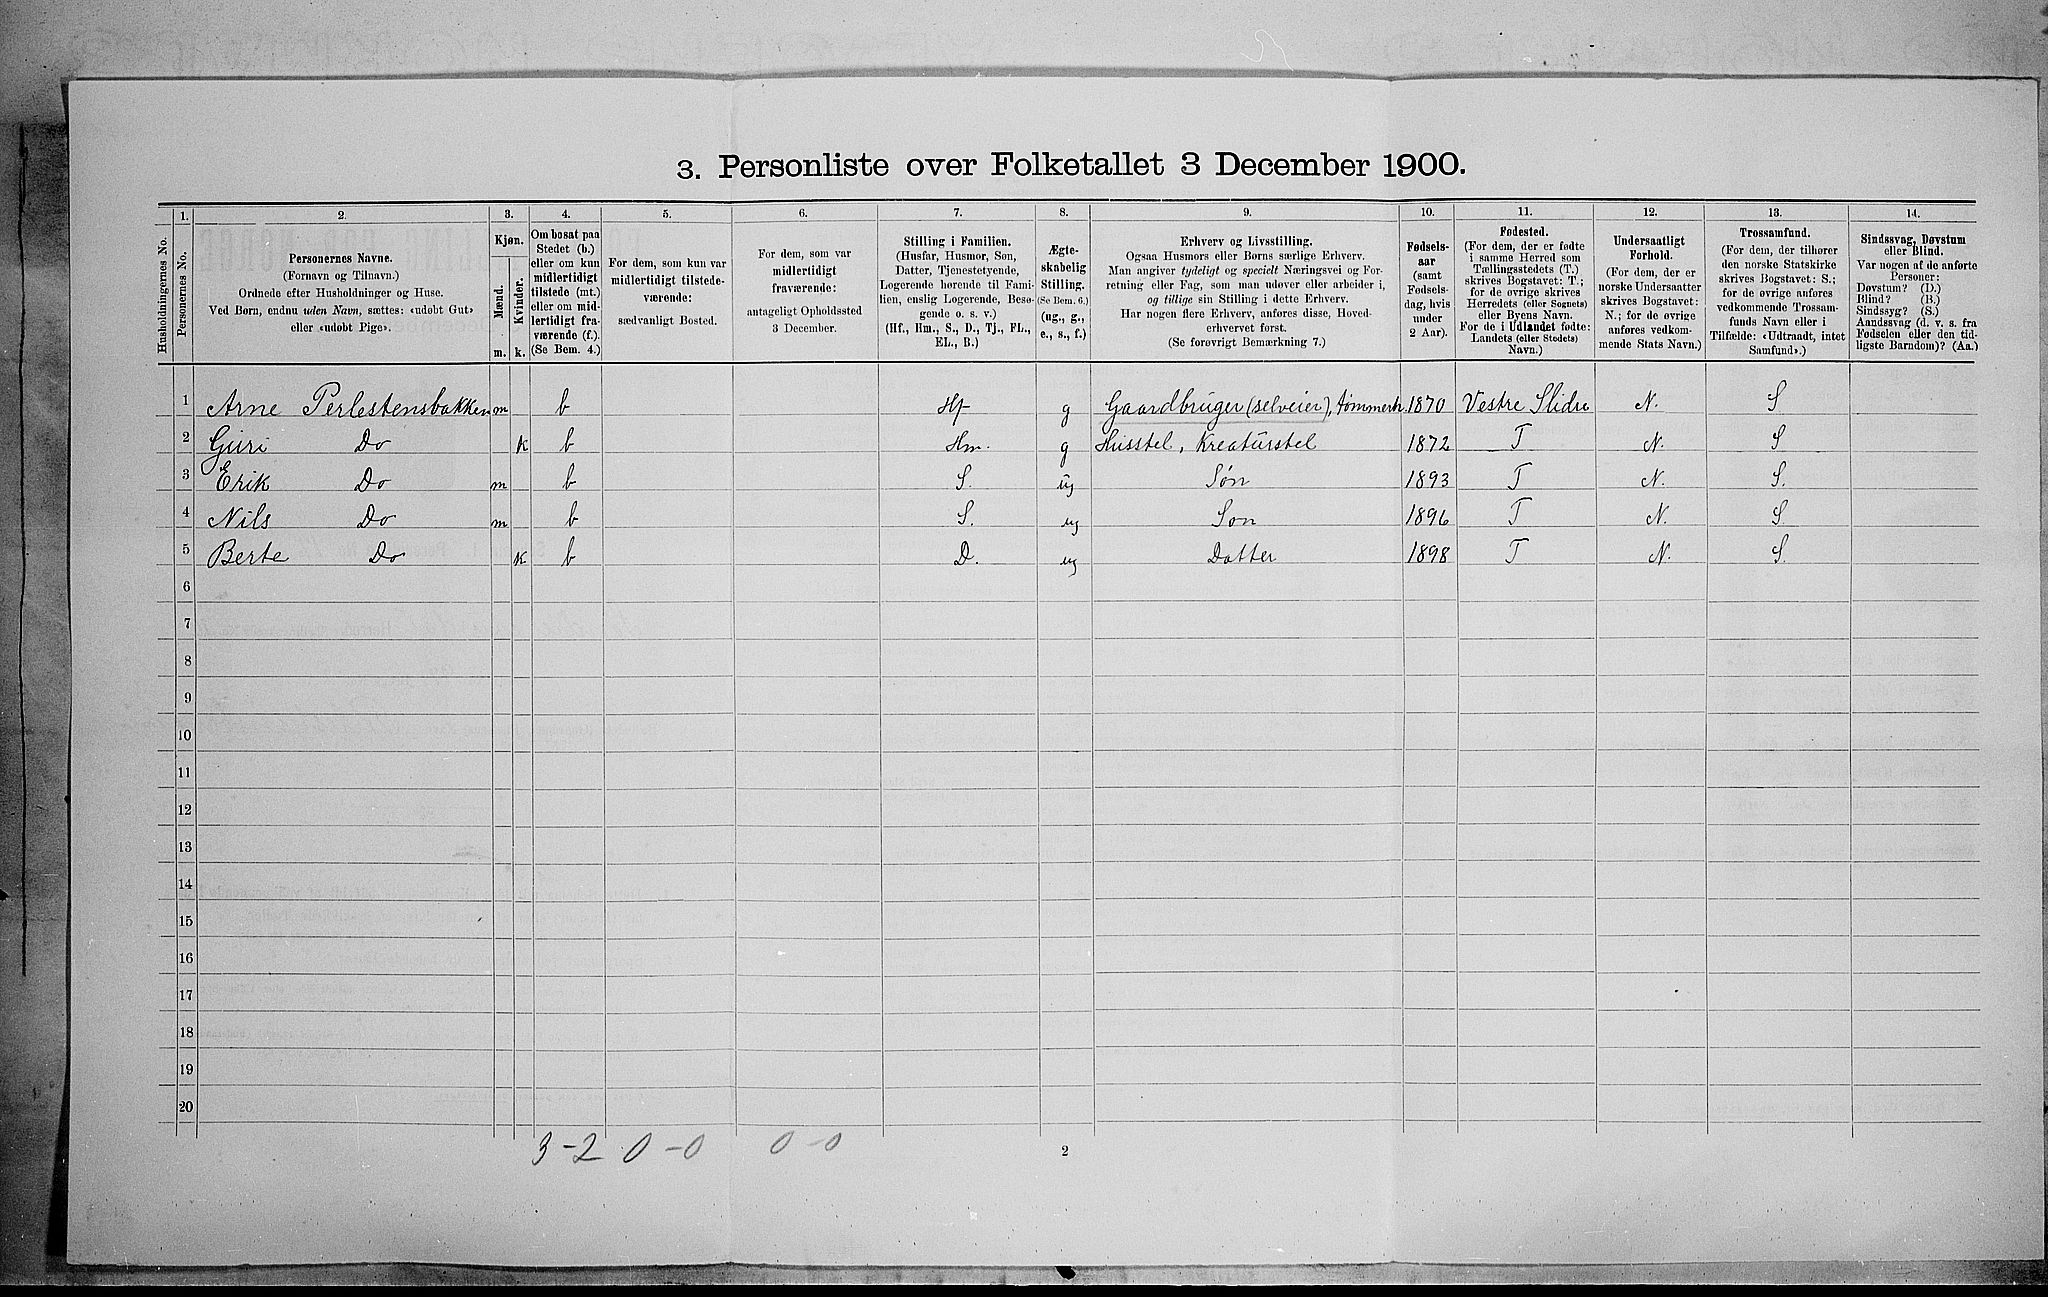 3. Personliste over Folketallet 3 December 1900.
1. 2. 3. 4. 5. 6. 7. 8. 9. 10. 11. 12. 13. 14.
Husholdningernes No.
Personernes No.
Personernes Navne.
(Fornavn og Tilnavn.)
Ordnede efter Husholdninger og Huse.
Ved Børn, endnu uden Navn, sættes: «udøbt Gut»
eller «udøbt Pige».
Kjøn.
Mænd.
Kvinder.
m. k.
Om bosat paa
Stedet (b.)
eller om kun
midlertidigt
tilstede (mt.)
eller om mid-
lertidigt fra-
værende (f.).
(Se Bem. 4.)
For dem, som kun var
midlertidigt tilstede-
værende:
sædvanligt Bosted.
For dem, som var
midlertidigt
fraværende:
antageligt Opholdssted
3 December.
Stilling i Familien.
(Husfar, Husmor, Søn,
Datter, Tjenestetyende,
Logerende hørende til Fami-
lien, enslig Logerende, Besø-
gende o. s. v.)
(Hf., Hm., S., D., Tj., FL.,
EL., B.)
Ægte-
skabelig
Stilling.
(Se Bem. 6.)
(ug., g.,
e., s., f.)
Erhverv og Livsstilling.
Ogsaa Husmors eller Børns særlige Erhverv.
Man angiver tydeligt og specielt Næringsvei og For-
retning eller Fag, som man udøver eller arbeider i,
og tillige sin Stilling i dette Erhverv.
Har nogen flere Erhverv, anføres disse, Hoved-
erhvervet først.
(Se forøvrigt Bemærkning 7.)
Fødsels-
aar
(samt
Fødsels-
dag, hvis
under
2 Aar).
Fødested.
(For dem, der er fødte
i samme Herred som
Tællingsstedets (T.)
skrives Bogstavet: T.;
for de øvrige skrives
Herredets (eller Sognets)
eller Byens Navn.
For de i Udlandet fødte:
Landets (eller Stedets)
Navn.)
Undersaatligt
Forhold.
(For dem, der er
norske Undersaatter
skrives Bogstavet:
N.; for de øvrige
anføres vedkom-
mende Stats Navn.)
Trossamfund.
(For dem, der tilhører
den norske Statskirke
skrives Bogstavet: S.;
for de øvrige anføres
vedkommende Trossam-
funds Navn eller i
Tilfælde: «Udtraadt, intet
Samfund».)
Sindssvag, Døvstum
eller Blind.
Var nogen af de anførte
Personer:
Døvstum? (D.)
Blind? (B.)
Sindssyg? (S.)
Aandssvag (d. v. s. fra
Fødselen eller den tid-
ligste Barndom)? (Aa.)
1 Arne Perlestensbakken m b Hf g Gaardbruger (selveier), tømmerh. 1870 Vestre Slidre N. S
2 Guri Do k b Hm. g Husstel, Kreaturstel 1872 T N. S
3 Erik Do m b S. ug Søn 1893 T N. S.
4 Nils Do m b S. ug Søn 1896 T N. S
5 Berte Do k b D. ug Datter 1898 T N. S.
6
7
8
9
10
11
12
13
14
15
16
17
18
19
20
3-2 0-0 0-0
2